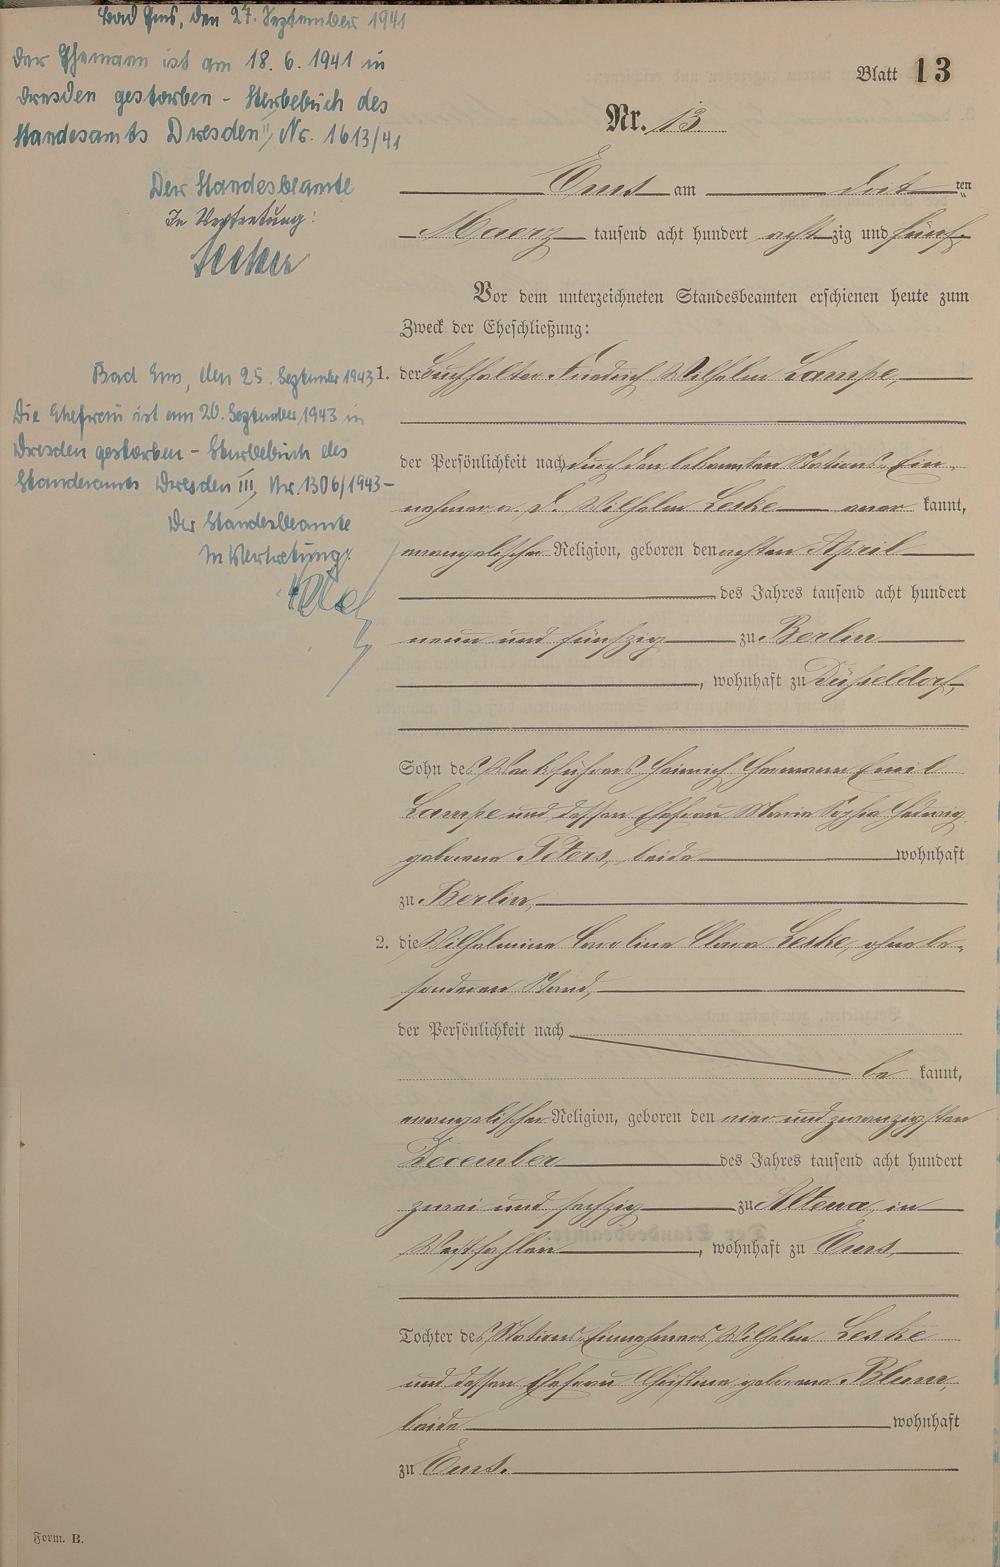 Bad Ems, den 27. September 1941
Der Ehemann ist am 18. 6. 1941 in
Dresden gestorben - Sterbebuch des
Standesamts Dresden II, Nr. 1613/41
Der Standesbeamte
In Vertretung:
Bad Ems, den 25. September 1943
Die Ehefrau ist am 20. September 1943 in
Dresden gestorben - Sterbebuch des
Standesamts Dresden III, Nr. 1306/1943-
Der Standesbeamte
In Vertretung:
Blatt 13
Nr. 13
Ems am drit ten
Maerz tausend acht hundert acht zig und fünf.
Vor dem unterzeichneten Standesbeamten erschienen heute zum
Zweck der Eheschließung:
1. der Buchhalter Friedrich Wilhelm Lampe,
der Persönlichkeit nach durch den bekannten Stations-Ein-
nehmer a. D. Wilhelm Leske aner kannt,
evangelischer Religion, geboren den achten April
des Jahres tausend acht hundert
neun und fünfzig zu Berlin
, wohnhaft zu Düsseldorf,
Sohn des Werkführers Heinrich Hermann Emil
Lampe und dessen Ehefrau Marie Sophie Hedwig
geborene Peters, beide wohnhaft
zu Berlin,
2. die Wilhelmine Caroline Clara Leske, ohne be-
sonderen Stand,
der Persönlichkeit nach
be kannt,
evangelischer Religion, geboren den vier und zwanzigsten
December des Jahres tausend acht hundert
zwei und sechzig zu Altena, in
Westfahlen, wohnhaft zu Ems,
Tochter des Stations-Einnehmers Wilhelm Leske
und dessen Ehefrau Christine geborene Blum,
beide wohnhaft
zu Ems.
Form. B.